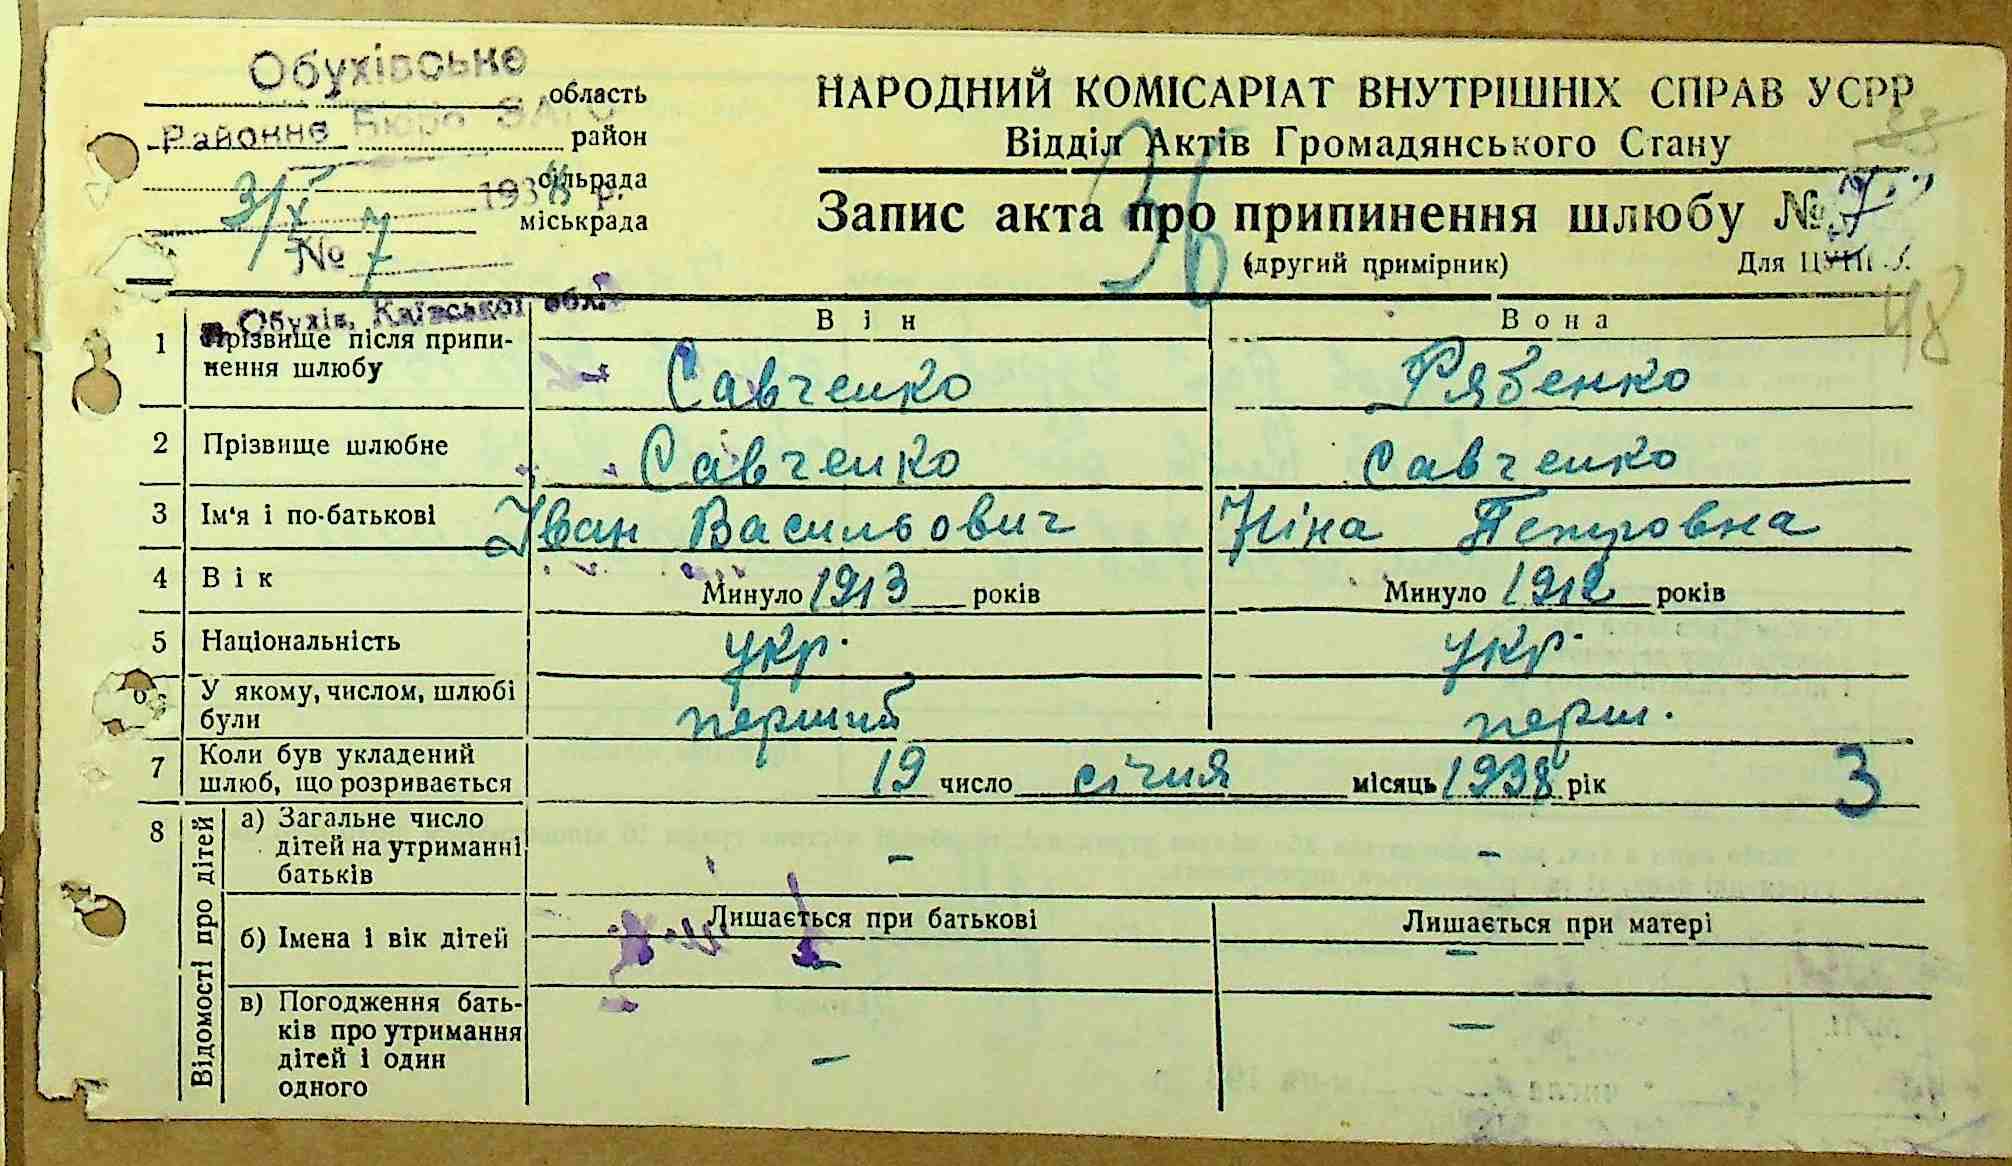 Обухівське
область
Районне Бюро ЗАГС
район
сільрада
3/X 1938 р.
міськрада
№ 7
м. Обухів, Київської обл.
НАРОДНИЙ КОМІСАРІАТ ВНУТРІШНІХ СПРАВ УСРР
Відділ Актів Громадянського Стану
36
Запис акта про припинення шлюбу № 7
(другий примірник) Для
48
Він Вона
1 Прізвище після припи-
нення шлюбу Савченко Рябенко
2 Прізвище шлюбне Савченко Савченко
3 Ім'я і по-батькові Іван Васильович Ніна Петровна
4 Вік Минуло 1913 років Минуло 1912 років
5 Національність укр. укр.
6 У якому, числом, шлюбі
були перший перш.
7 Коли був укладений
шлюб, що розривається 19 число січня місяць 1938 рік 3
8 Відомості про дітей
а) Загальне число
дітей на утриманні
батьків – –
Лишається при батькові Лишається при матері
б) Імена і вік дітей – –
в) Погодження бать-
ків про утримання
дітей і один
одного – –